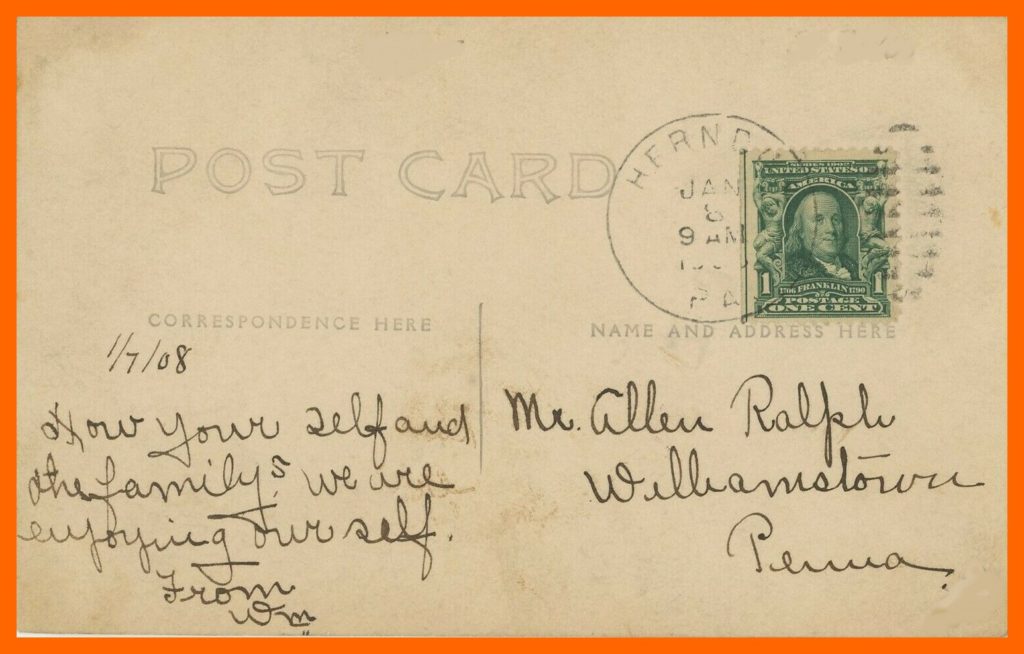 POST CARD
HERNDON
JAN
8
9 AM
PA
SERIES 1902
UNITED STATES OF
AMERICA
1 1706 FRANKLIN 1790 1
POSTAGE
ONE CENT
CORRESPONDENCE HERE
NAME AND ADDRESS HERE
1/7/08
How your self and
the family? We are
enjoying our self.
From
Wm
Mr. Allen Ralph
Williamstown
Penna.